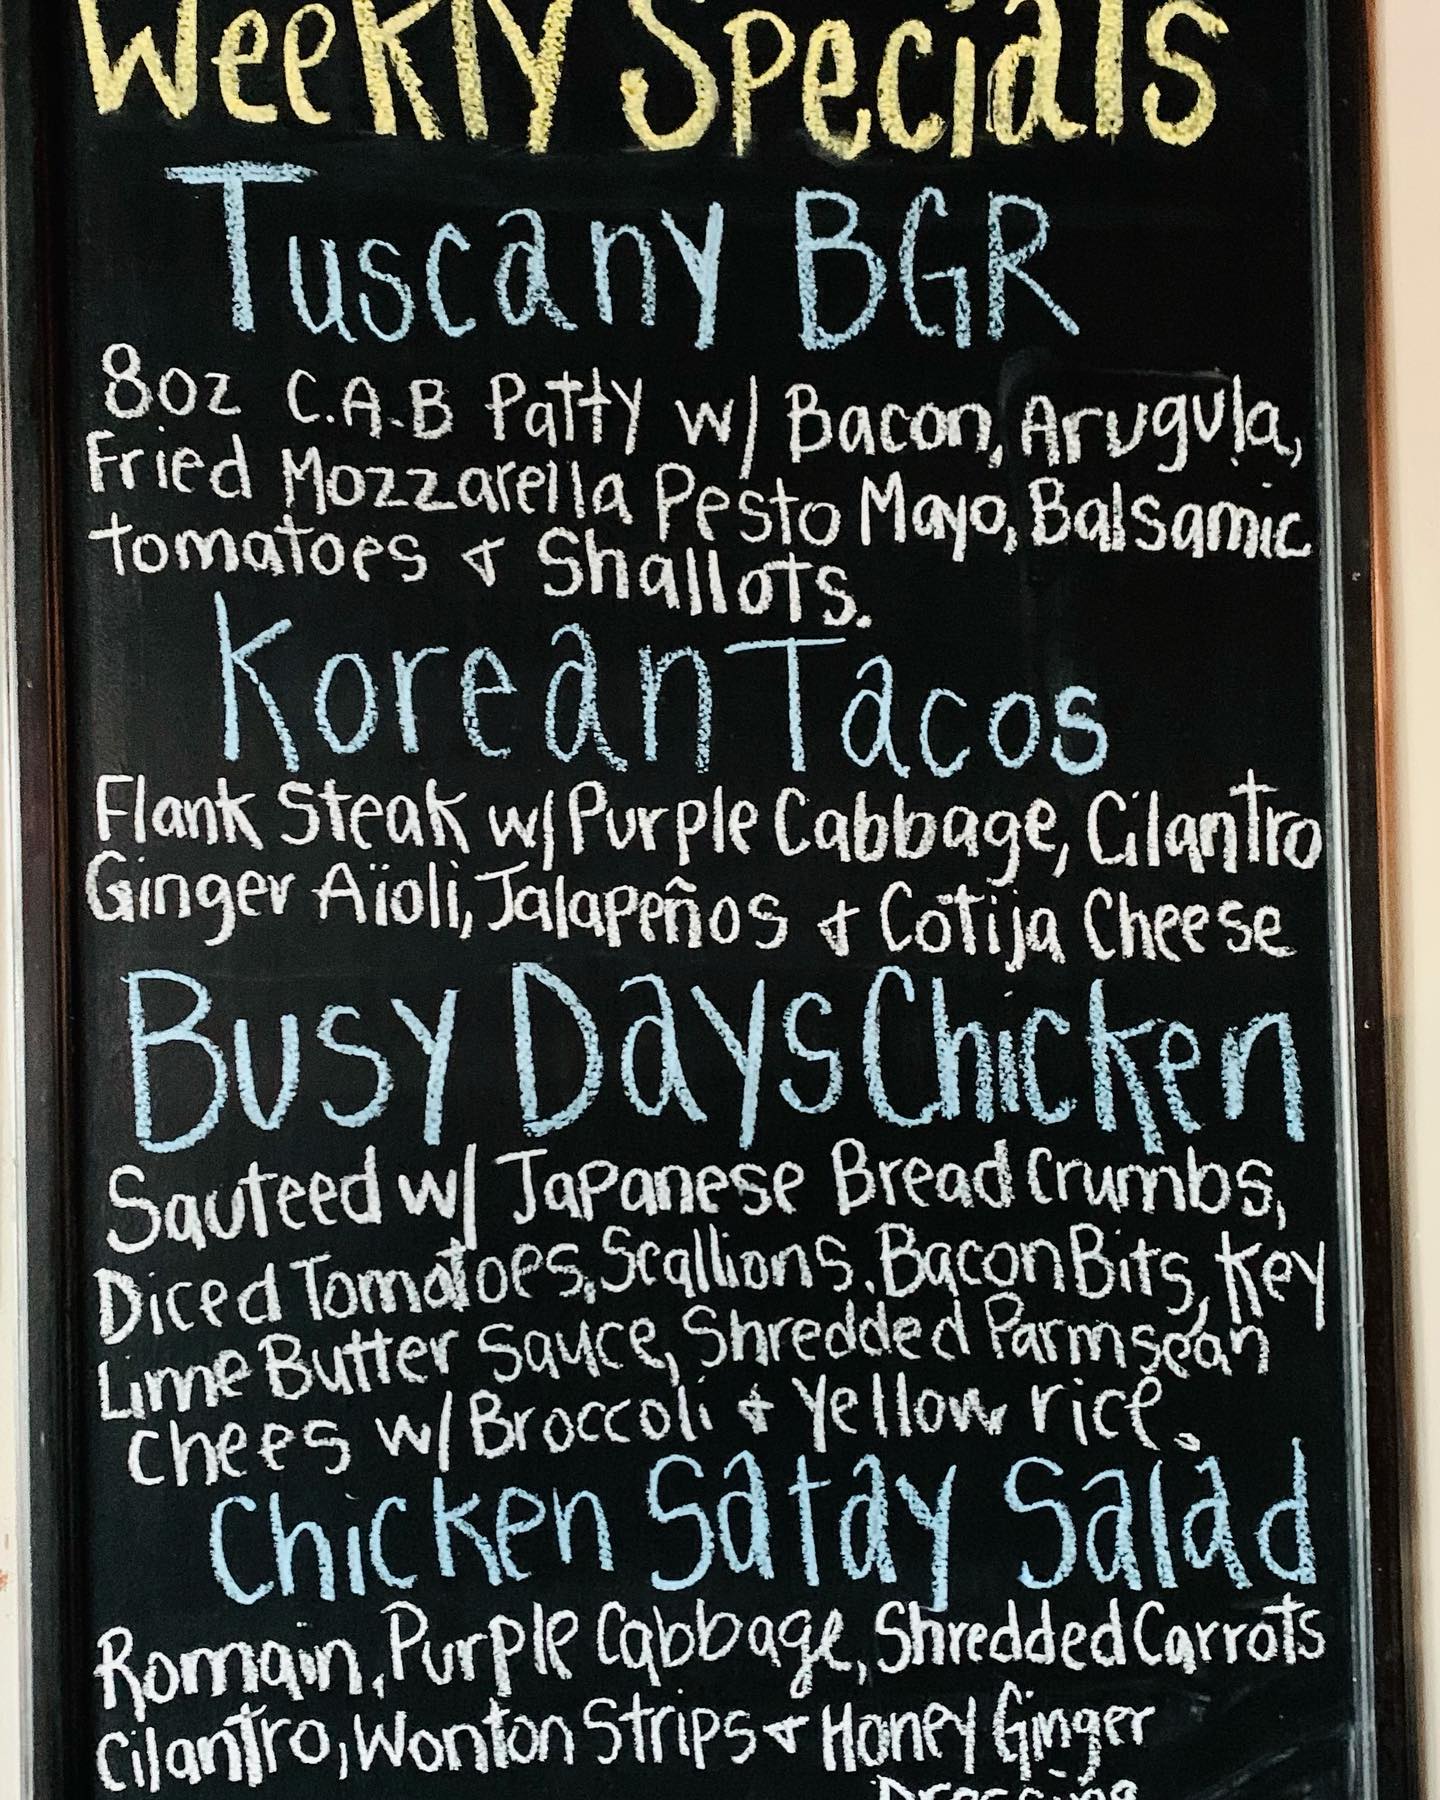 Weekly Specials
Tuscany BGR
8oz C.A.B Patty w/ Bacon, Arugula,
Fried Mozzarella Pesto Mayo, Balsamic
tomatoes & Shallots.
Korean Tacos
Flank Steak w/ Purple Cabbage, Cilantro
Ginger Aïoli, Jalapeños & Cotija Cheese
Busy Days Chicken
Sauteed w/ Japanese Bread Crumbs,
Diced Tomatoes, Scallions, Bacon Bits, Key
Lime Butter Sauce, Shredded Parmsean
chees w/ Broccoli & Yellow rice.
Chicken Satay Salad
Romain, Purple Cabbage, Shredded Carrots
Cilantro, Wonton Strips & Honey Ginger
Dressing